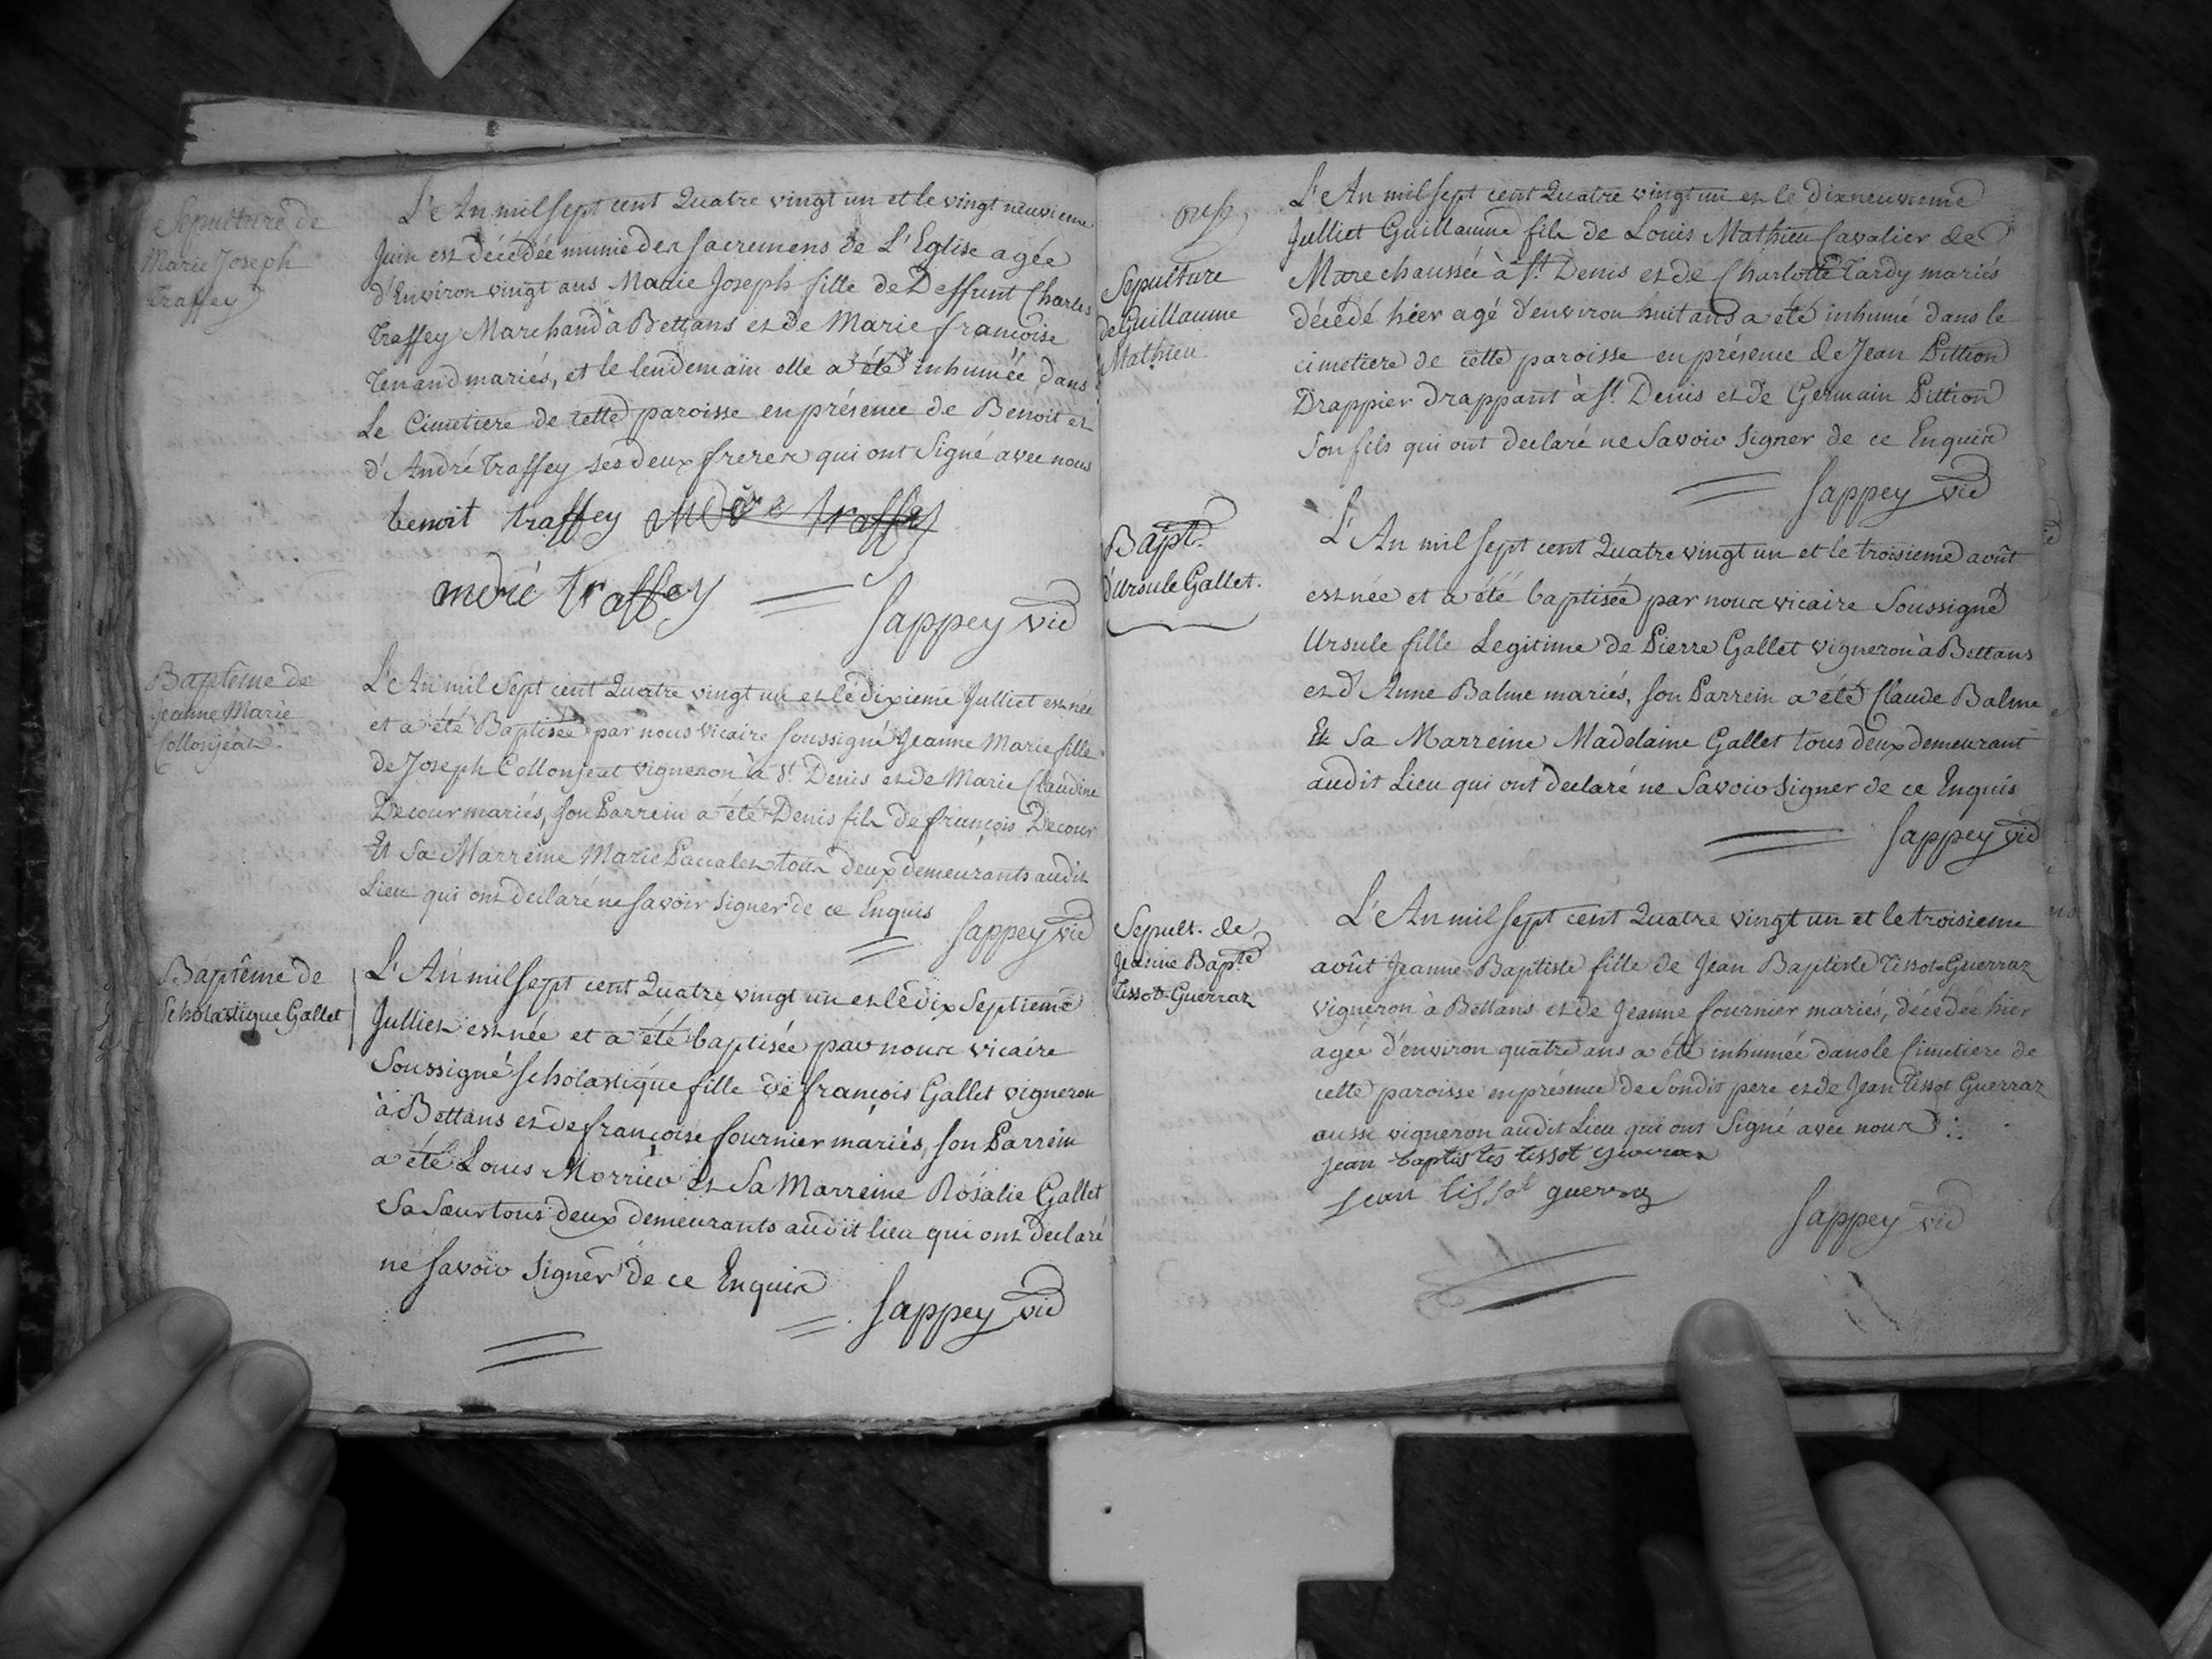 Sepulture de
Marie Joseph
Traffey
L'An mil sept cent Quatre vingt un et le vingt neuvieme
Juin est décédée munie des sacremens de L'Eglise agée
d'Environ vingt ans Marie Joseph fille de Deffunt Charles
Traffey Marchand à Bettans et de Marie françoise
Tenand mariés, et le lendemain elle a été inhumée dans
Le Cimetiere de cette paroisse en présence de Benoit et
d'André Traffey ses deux freres qui ont Signé avec nous
benoit traffey andre traffey
andré traffey Sappey vic
Baptême de
Jeanne Marie
Collonjeat
L'An mil Sept cent Quatre vingt un et le dixieme Julliet est née
et a été Baptisée par nous vicaire soussigné Jeanne Marie fille
de Joseph Collonjeat vigneron à St Denis et de Marie Claudine
Decour mariés, son Parrein a été Denis fils de françois Decour
Et Sa Marreine Marie tous deux demeurants audit
Lieu qui ont declaré ne savoir signer de ce Enquis
Sappey vic
Baptême de
Scholastique Gallet
L'An mil sept cent Quatre vingt un et le dix Septieme
Julliet est née et a été baptisée par nous vicaire
Soussigné Scholastique fille de françois Gallet vigneron
à Bettans et de françoise fournier mariés, son Parrein
a été Louis et Sa Marreine Rosalie Gallet
Sa Sœur tous deux demeurants audit lieu qui ont declaré
ne savoir signer de ce Enquis
Sappey vic
Sepulture
de Guillaume
Mathieu
L'An mil sept cent Quatre vingt un et le dixneuvieme
Julliet Guillaume fils de Louis Mathieu Cavalier de
Marechaussée à St Denis et de Charlotte Tardy mariés
décédé hier agé d'environ huit ans a été inhumé dans le
cimetiere de cette paroisse en présence de Jean Pittion
Drappier drappant à St Denis et de Germain Pittion
Son fils qui ont declaré ne Savoir signer de ce Enquis
Sappey vic
Bapt.
d'ursule Gallet.
L'An mil sept cent Quatre vingt un et le troisieme août
est née et a été baptisée par nous vicaire Soussigné
Ursule fille Legitime de Pierre Gallet vigneron à Bettans
et d'Anne Balme mariés, son Parrein a été Claude Balme
Et Sa Marreine Madelaine Gallet tous deux demeurant
audit Lieu qui ont declaré ne Savoir signer de ce Enquis
Sappey vic
Sepult. de
Jeanne Bapte
Tissot-Guerraz
L'An mil sept cent Quatre vingt un et le troisieme
août Jeanne Baptiste fille de Jean Baptiste Tissot-Guerraz
vigneron à Bettans et de Jeanne fournier mariés, décédée hier
agée d'environ quatre ans a été inhumée dans le Cimetiere de
cette paroisse en présence de Sondit pere et de Jean Tissot Guerraz
aussi vigneron audit Lieu qui ont Signé avec nous
Jean baptistes tissot
Jean tissot guerraz
Sappey vic